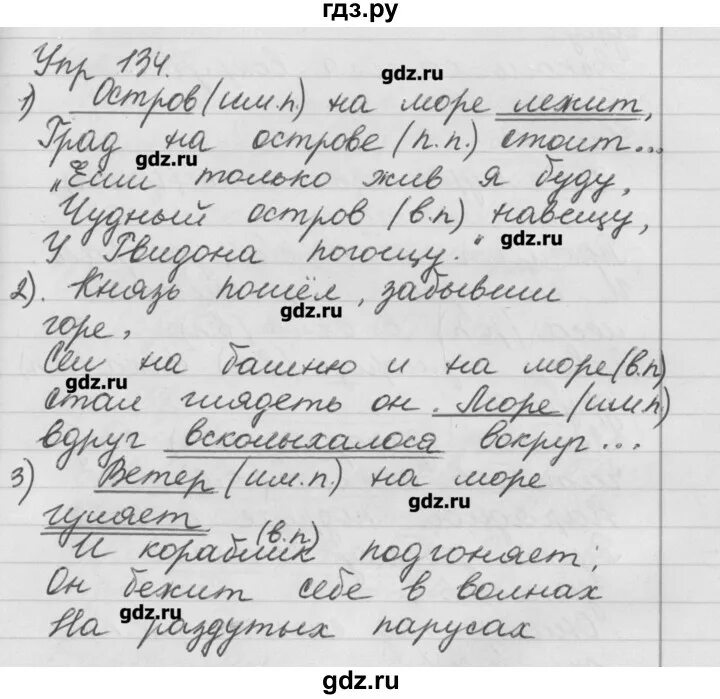 гдз.ру
Упр 134.
gdz.ru
1) Остров (им.п.) на море лежит,
Град на острове (п.п.) стоит...
gdz.ru
"Если только жив я буду,
Чудный остров (в.п) навещу,
gdz.ru
У Гвидона погощу."
2). Князь пошёл, забывши
gdz.ru
горе,
Сел на башню и на море (в.п)
gdz.ru
стал глядеть он. Море (им.п.)
вдруг всколыхалося вокруг...
3) Ветер (им.п.) на море
gdz.ru
гуляет
(в.п)
И кораблик подгоняет;
Он бежит себе в волнах
gdz.ru
На раздутых парусах
gdz.ru